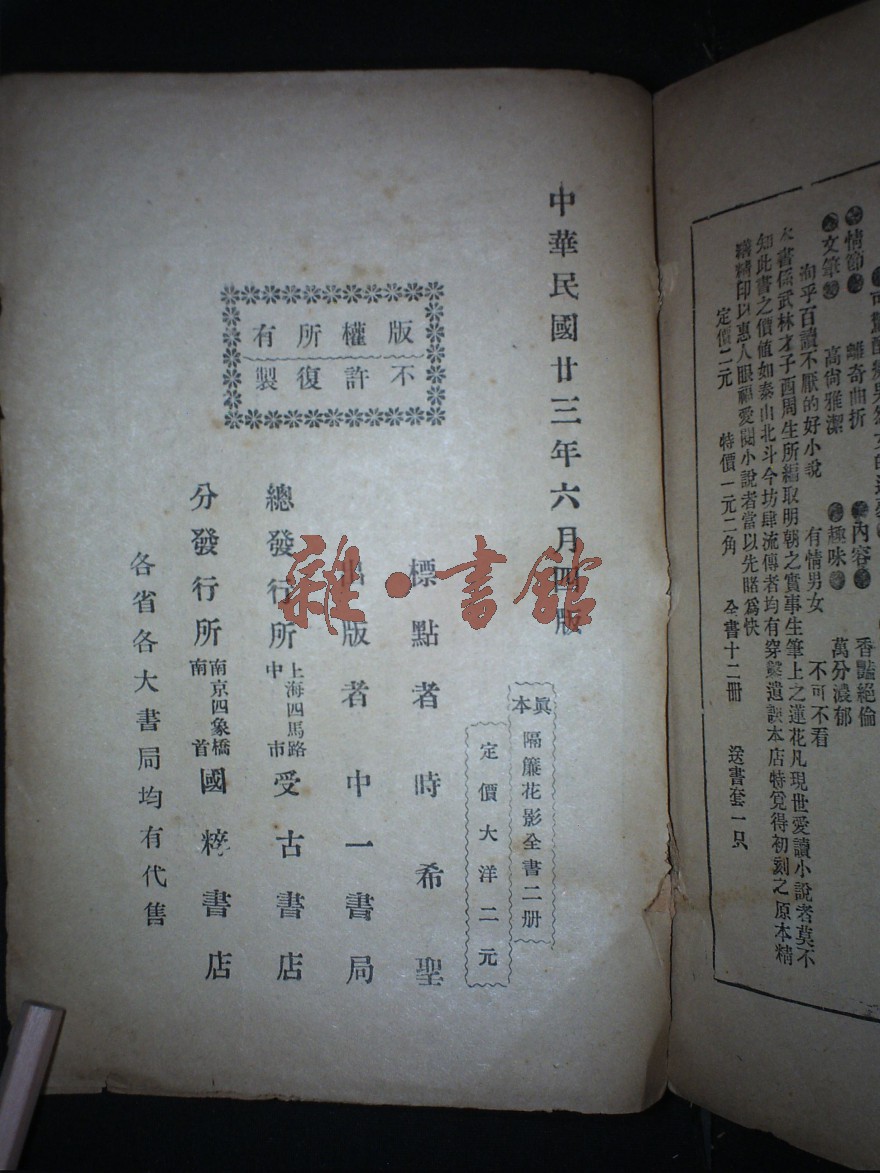 情節 離奇曲折 內容 香豔絕倫
文筆 高尙雅潔 趣味 萬分濃郁
洵乎百讀不厭的好小說 有情男女 不可不看
本書係武林才子西周生所編取明朝之實事生筆上之蓮花凡現世愛讀小說者莫不
知此書之價値如泰山北斗今坊肆流傳者均有穿鑿遺誤本店特覓得初刻之原本精
繕精印以惠人眼福愛閱小說者當以先賭爲快
定價二元 特價一元二角 全書十二冊 送書套一只
中華民國廿三年六月四版
眞本 隔簾花影全書二册
定價大洋二元
版權所有
不許復製
標點者時希聖
出版者中一書局
總發行所 上海四馬路中市 受古書店
分發行所 南京四象橋南首 國粹書店
各省各大書局均有代售
雜·書館